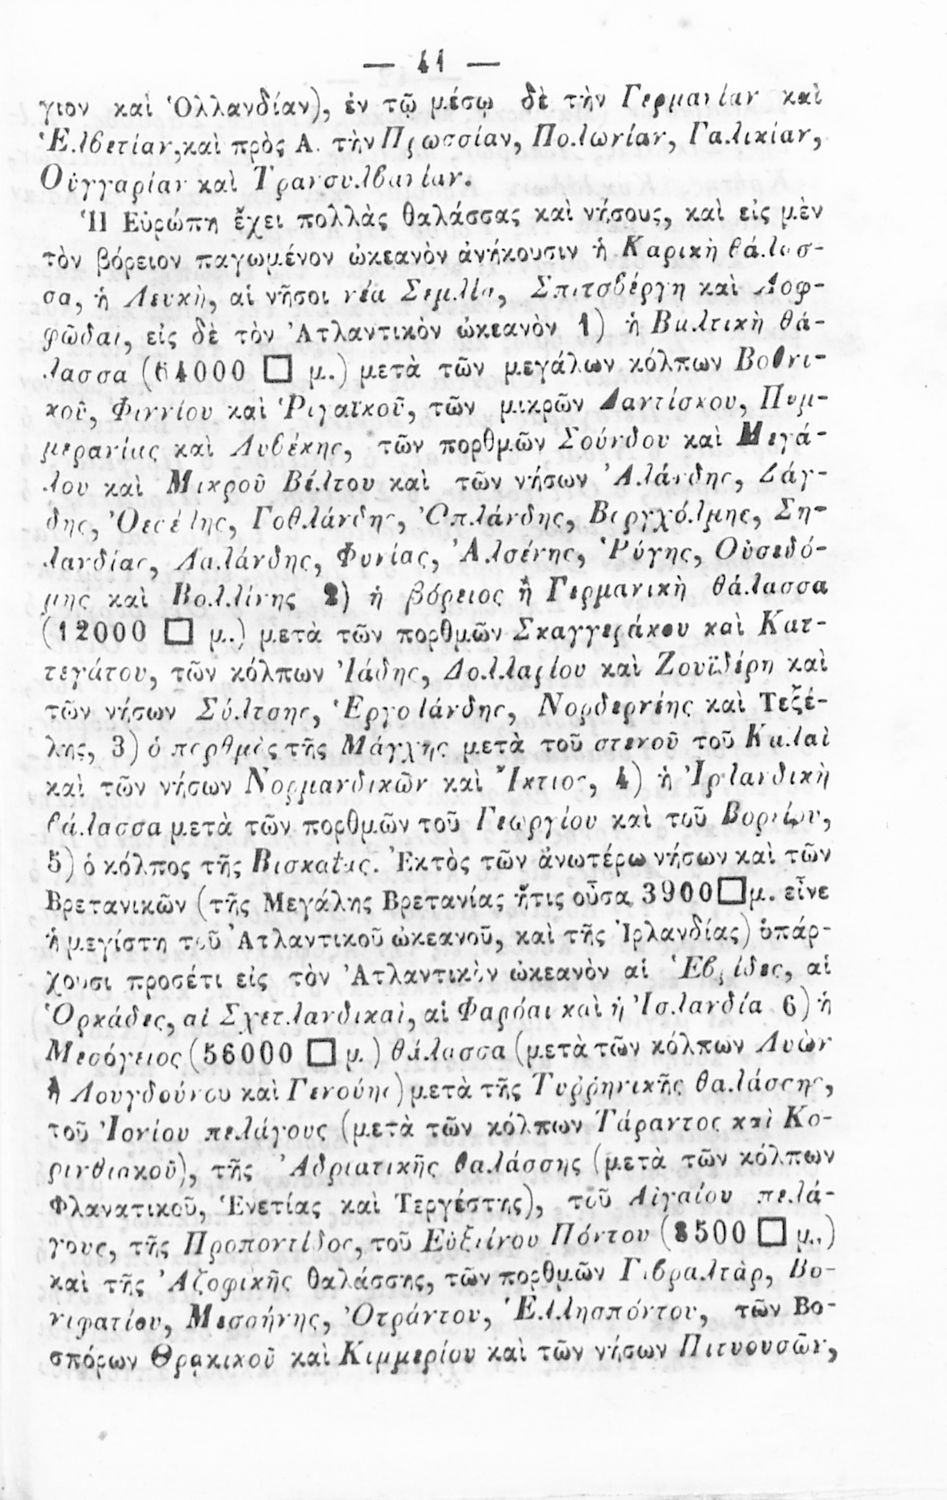 — 41 —
γιον καὶ Ὁλλανδίαν), ἐν τῷ μέσῳ δὲ τὴν Γερμανίαν καὶ
Ἑλβετίαν, καὶ πρὸς Α. τὴν Πρωσσίαν, Πολωνίαν, Γαλικίαν,
Οὑγγαρίαν καὶ Τρανσυλβανίαν.
Ἡ Εὐρώπη ἔχει πολλὰς θαλάσσας καὶ νήσους, καὶ εἰς μὲν
τὸν βόρειον παγωμένον ὠκεανὸν ἀνήκουσιν ἡ Καρικὴ θάλασ-
σα, ἡ Λευκὴ, αἱ νῆσοι νέα Σεμλία, Σπιτσβέργη καὶ Λοφ-
φῶδαι, εἰς δὲ τὸν Ἀτλαντικὸν ὠκεανὸν 1) ἡ Βαλτικὴ θά-
λασσα (64000 □ μ.) μετὰ τῶν μεγάλων κόλπων Βοθνι-
κοῦ, Φιννίου καὶ Ῥιγαϊκοῦ, τῶν μικρῶν Δαντίσκου, Πομ-
μερανίας καὶ Λυβέκης, τῶν πορθμῶν Σούνδου καὶ Μεγά-
λου καὶ Μικροῦ Βέλτου καὶ τῶν νήσων Ἀλάνδης, Δάγ-
δης, Ὀεσέλης, Γοθλάνδης, Ὀπλάνδης, Βεργχόλμης, Ση-
λανδίας, Λαλάνδης, Φυνίας, Ἀλσένης, Ῥύγης, Οὐσεδό-
μης καὶ Βολλίνης 2) ἡ βόρειος ἢ Γερμανικὴ θάλασσα
(12000 □ μ.) μετὰ τῶν πορθμῶν Σκαγγεράκου καὶ Κατ-
τεγάτου, τῶν κόλπων Ἰάδης, Δολλαρίου καὶ Ζουϊδέρη καὶ
τῶν νήσων Σύλτσης, Ἑργολάνδης, Νορδερνέης καὶ Τεξέ-
λης, 3) ὁ πορθμὸς τῆς Μάγχης μετὰ τοῦ στενοῦ τοῦ Καλαὶ
καὶ τῶν νήσων Νορμανδικῶν καὶ Ἴκτιος, 4) ἡ Ἰρλανδικὴ
θάλασσα μετὰ τῶν πορθμῶν τοῦ Γεωργίου καὶ τοῦ Βορείου,
5) ὁ κόλπος τῆς Βισκαΐας. Ἐκτὸς τῶν ἀνωτέρω νήσων καὶ τῶν
Βρετανικῶν (τῆς Μεγάλης Βρετανίας ἥτις οὖσα 3900 □ μ. εἶνε
ἡ μεγίστη τοῦ Ἀτλαντικοῦ ὠκεανοῦ, καὶ τῆς Ἰρλανδίας) ὑπάρ-
χουσι προσέτι εἰς τὸν Ἀτλαντικὸν ὠκεανὸν αἱ Ἑβρίδες, αἱ
Ὀρκάδες, αἱ Σχετλανδικαὶ, αἱ Φαρόαι καὶ ἡ Ἰσλανδία 6) ἡ
Μεσόγειος (56000 □ μ.) θάλασσα (μετὰ τῶν κόλπων Λυὼν
ἢ Λουγδούνου καὶ Γενούης) μετὰ τῆς Τυρρηνικῆς θαλάσσης,
τοῦ Ἰονίου πελάγους (μετὰ τῶν κόλπων Τάραντος καὶ Κο-
ρινθιακοῦ), τῆς Ἀδριατικῆς θαλάσσης (μετὰ τῶν κόλπων
Φλανατικοῦ, Ἑνετίας καὶ Τεργέστης), τοῦ Αἰγαίου πελά-
γους, τῆς Προποντίδος, τοῦ Εὐξείνου Πόντου (8500 □ μ.)
καὶ τῆς Ἀζοφικῆς θαλάσσης, τῶν πορθμῶν Γιβραλτὰρ, Βο-
νιφατίου, Μεσσήνης, Ὀτράντου, Ἑλλησπόντου, τῶν Βο-
σπόρων Θρᾳκικοῦ καὶ Κιμμερίου καὶ τῶν νήσων Πιτυουσῶν,